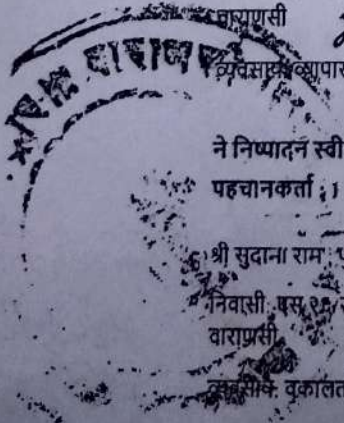 वाराणसी
व्यवसाय व्यापार
वाराणसी
ने निष्पादन स्वी
पहचानकर्ता : 1
श्री सुदाना राम पु
निवासी एस
वाराणसी
व्यवसाय वकालत